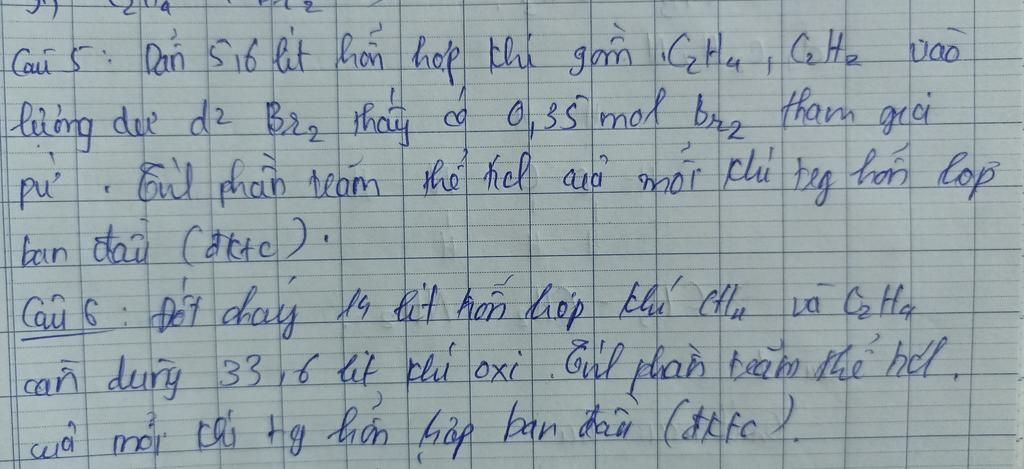 Câu 5: Dẫn 5,6 lít hỗn hợp khí gồm C2H4, C2H2 vào
lượng dư d² Br2 thấy có 0,35 mol Br2 tham gia
pứ. Tính phần trăm thể tích của mỗi khí trg hỗn hợp
ban đầu (đktc).
Câu 6: Đốt cháy 14 lít hỗn hợp khí CH4 và C2H4
cần dùng 33,6 lít khí oxi. Tính phần trăm thể tích
của mỗi khí trg hỗn hợp ban đầu (đktc).